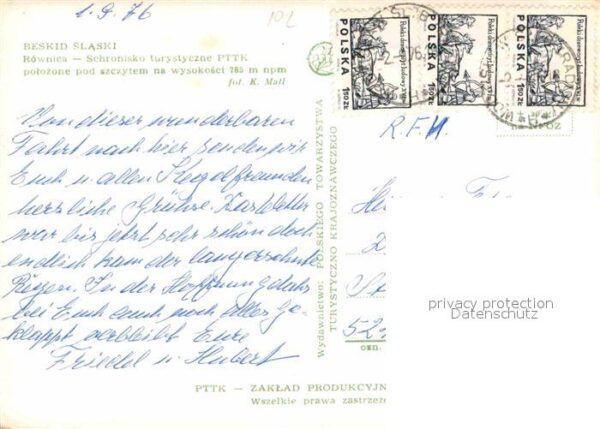 1.9.76
102
BESKID ŚLĄSKI
Równica — Schronisko turystyczne PTTK
położone pod szczytem na wysokości 785 m npm
fot. K. Mall
Von dieser wunderbaren
Fahrt nach hier senden wir
Euch u. allen Kegelfreunden
herrliche Grüße. Das Wetter
war bis jetzt sehr schön doch
endlich kam der langersehnte
Regen. In der Hoffnung daß
bei Euch auch noch alles ge-
klappt verbleibt Eure
Friedel u. Hubert
Wydawnictwo: POLSKIEGO TOWARZYSTWA
TURYSTYCZNO KRAJOZNAWCZEGO
POLSKA
1.50 ZŁ
POLSKA
1.50 ZŁ
POLSKA
1.50 ZŁ
R.F.N.
2
St
527
privacy protection
Datenschutz
PTTK — ZAKŁAD PRODUKCYJN
Wszelkie prawa zastrzeż